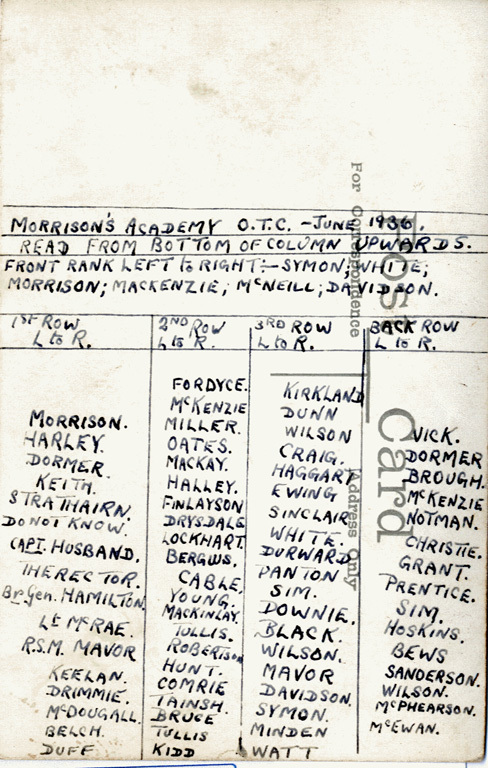 MORRISON'S ACADEMY O.T.C. - JUNE 1936.
READ FROM BOTTOM OF COLUMN UPWARDS.
FRONT RANK LEFT to RIGHT:- SYMON; WHITE;
MORRISON; MACKENZIE; McNEILL; DAVIDSON.
1ST ROW
L to R.
MORRISON.
HARLEY.
DORMER.
KEITH.
STRATHAIRN.
DO NOT KNOW.
CAPT. HUSBAND.
THE RECTOR.
Br Gen. HAMILTON.
Lt McRAE.
R.S.M. MAVOR
KEELAN.
DRIMMIE.
McDOUGALL.
BELCH.
DUFF
2ND ROW
L to R.
FORDYCE.
McKENZIE
MILLER.
OATES.
MACKAY.
HALLEY.
FINLAYSON
DRYSDALE
LOCKHART.
BERGIUS.
CABLE.
YOUNG.
MACKINLAY.
TULLIS.
ROBERTSON
HUNT.
COMRIE
TAINSH.
BRUCE
TULLIS
KIDD
3RD ROW
L to R.
KIRKLAND
DUNN
WILSON
CRAIG.
HAGGART
EWING
SINCLAIR
WHITE.
DURWARD
PANTON
SIM.
DOWNIE.
BLACK.
WILSON.
MAVOR
DAVIDSON.
SYMON.
MINDEN
WATT
BACK ROW
L to R.
VICK.
DORMER
BROUGH.
McKENZIE
NOTMAN.
CHRISTIE.
GRANT.
PRENTICE.
SIM.
HOSKINS.
BEWS
SANDERSON.
WILSON.
McPHEARSON.
McEWAN.
Post Card
For Correspondence
Address Only